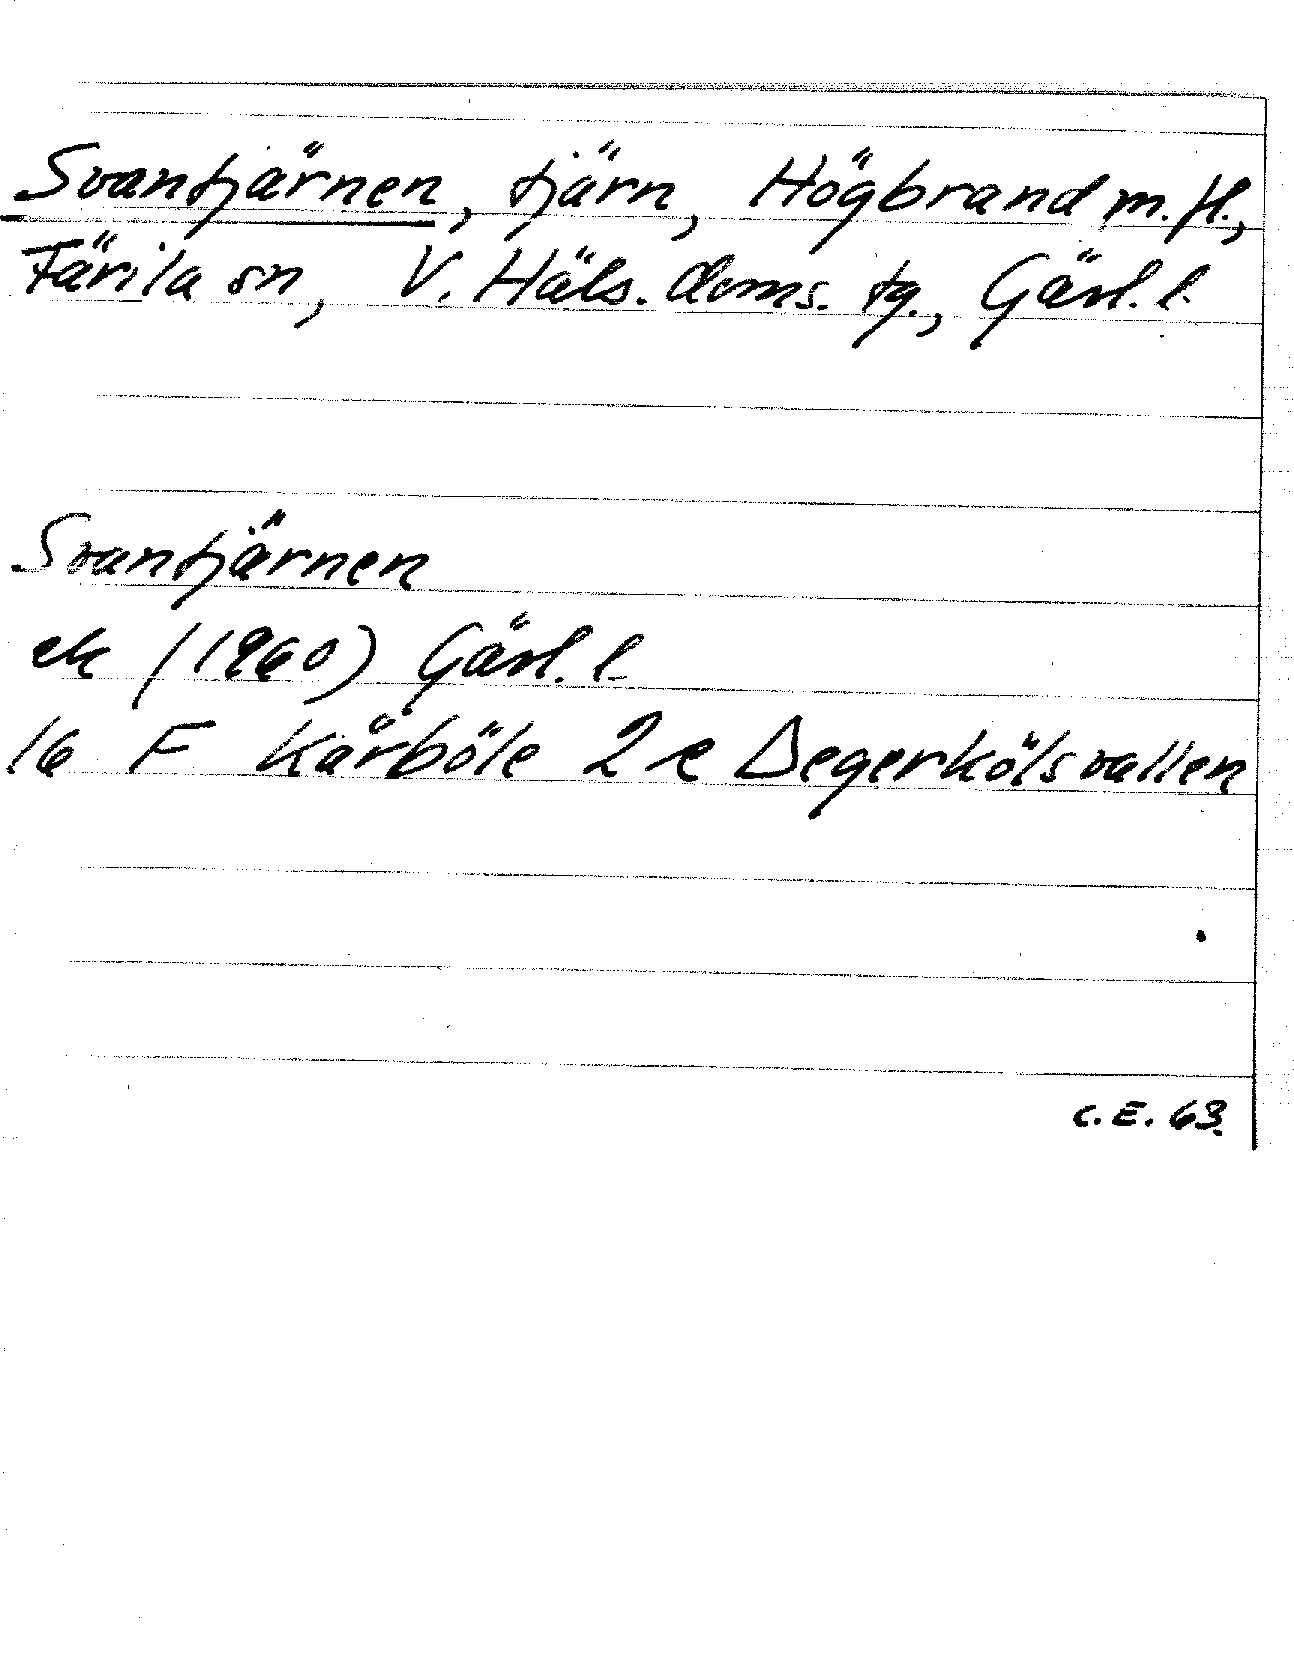 Svantjärnen, tjärn, Högbrand m.fl.,
Färila sn, V. Häls. doms. tg., Gävl. l.
Svantjärnen
ek (1960) Gävl. l.
16 F Kårböle 2 e Degerkölsvallen
C.E. 63.